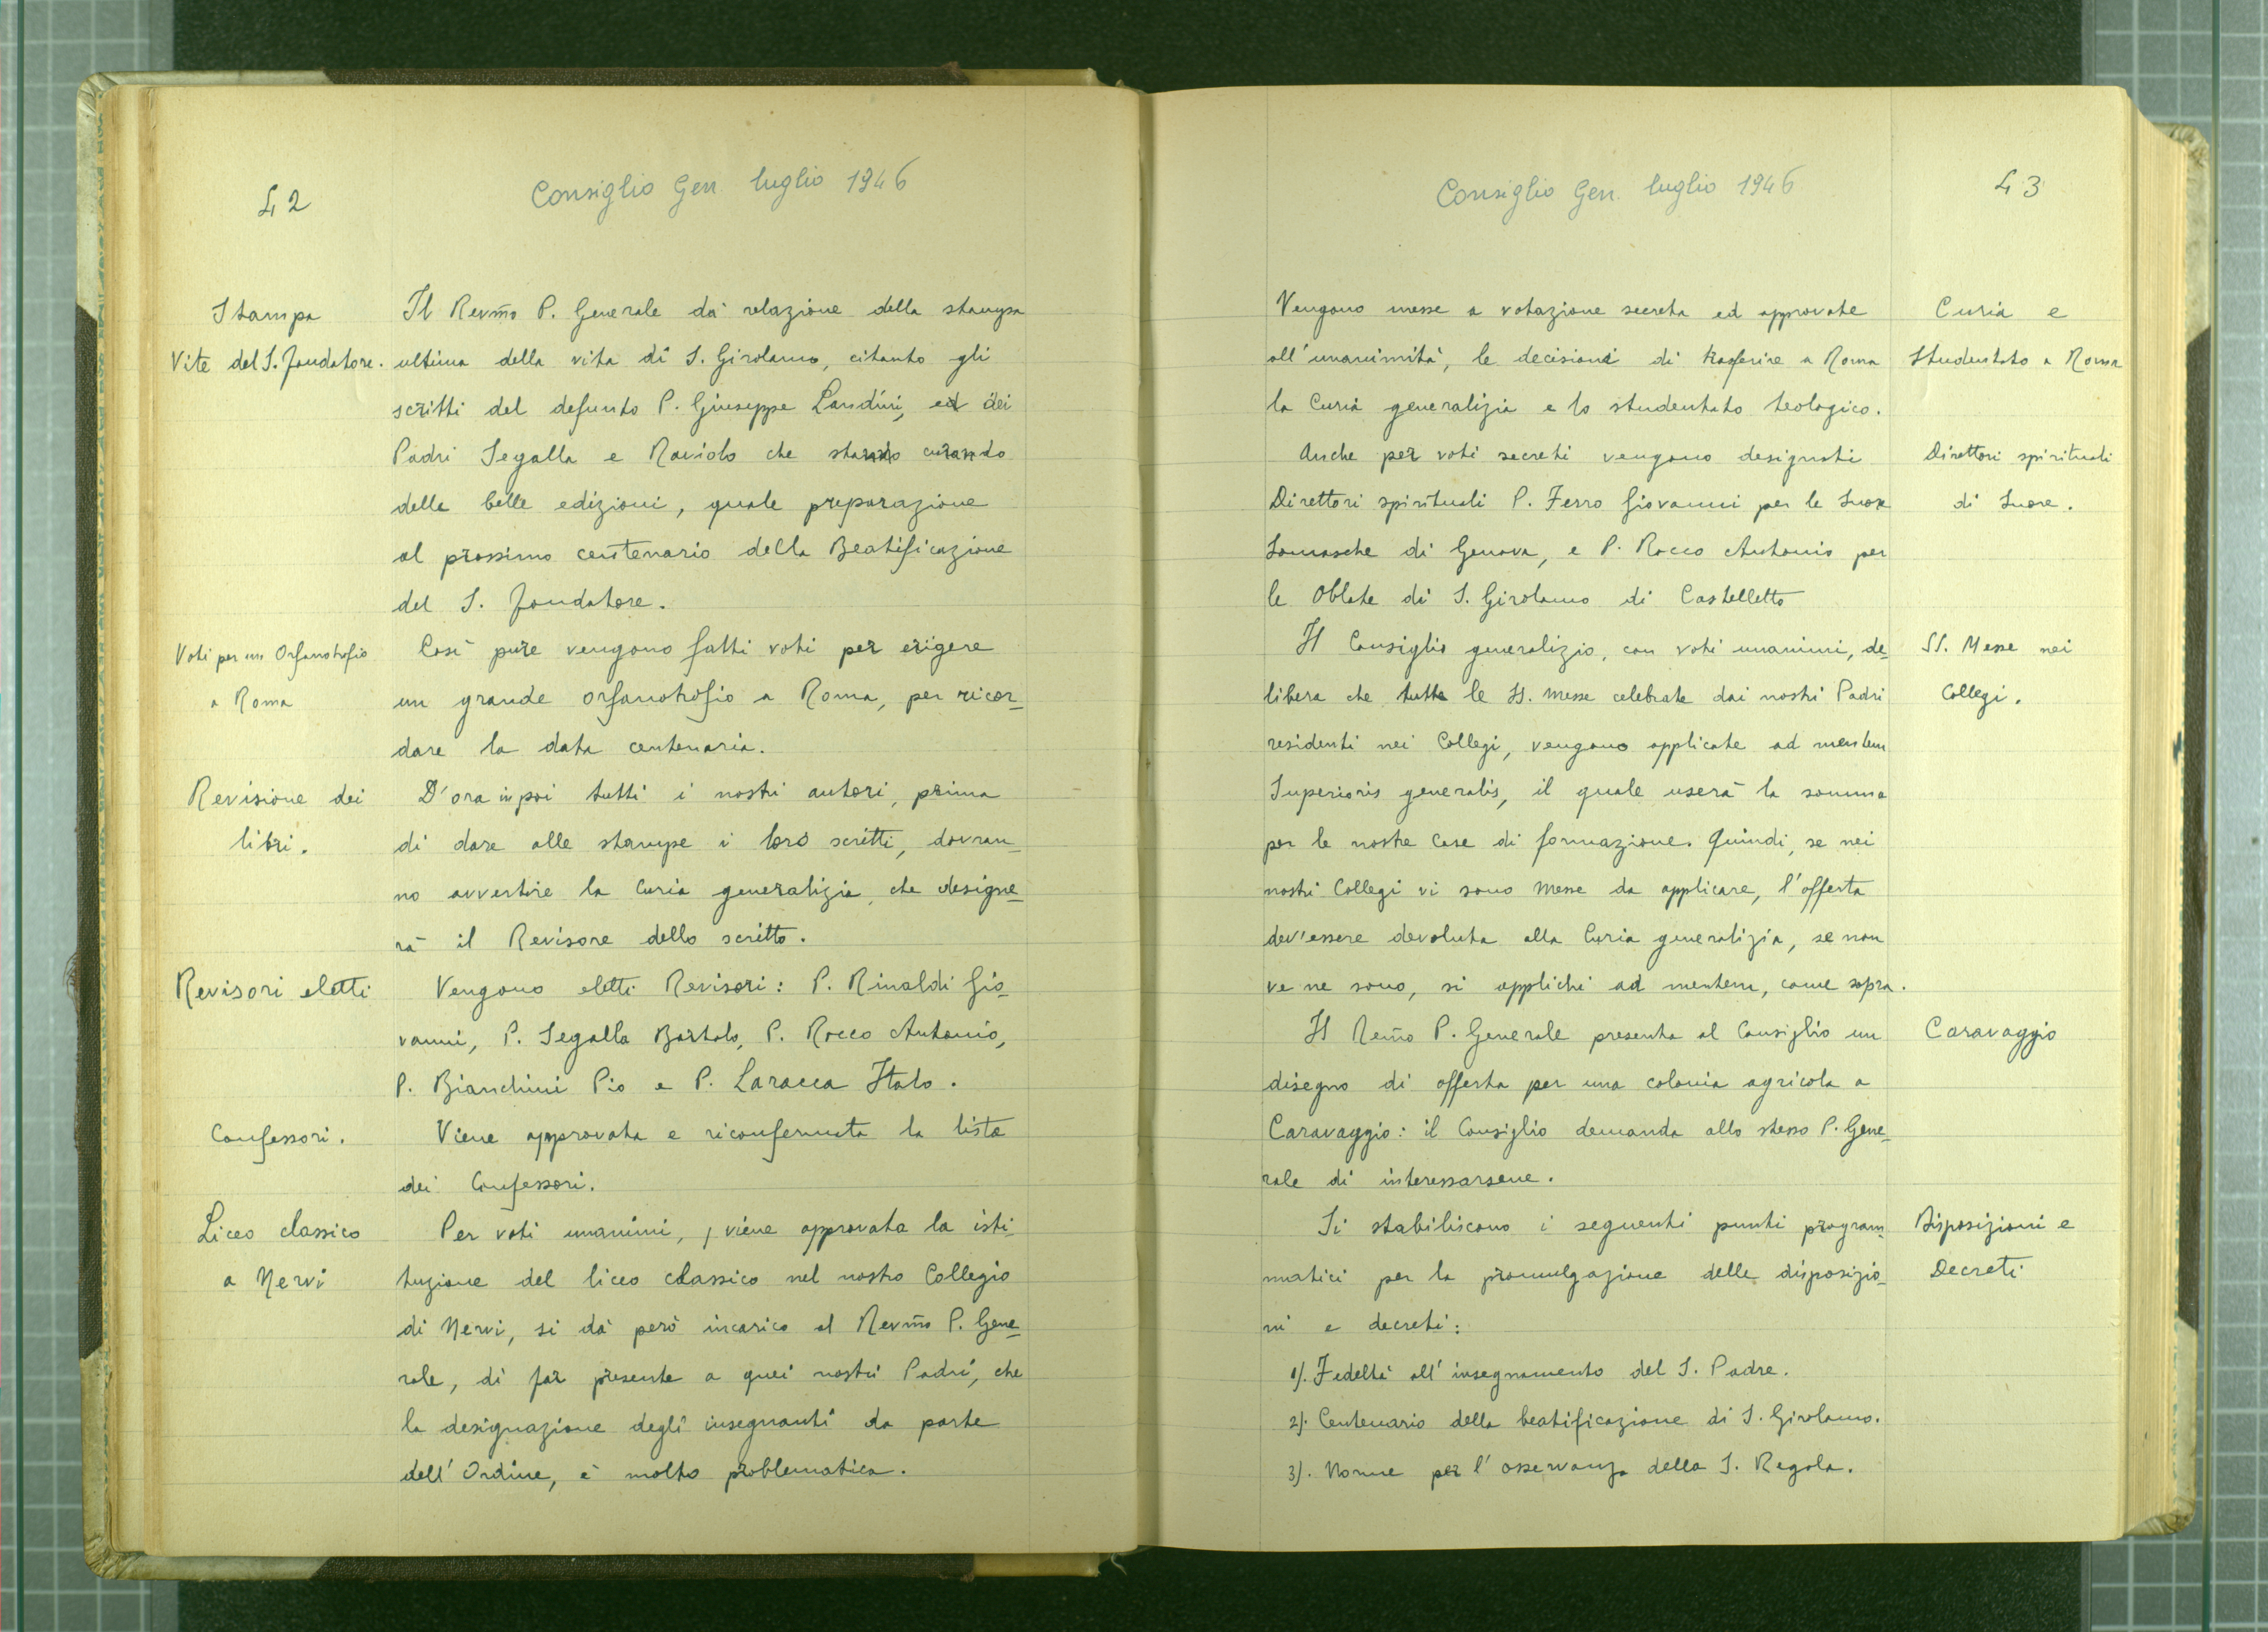 42
Consiglio Gen. luglio 1946
Stampa
Vite del S. Fondatore.
Il Revm̃o P. Generale dà relazione della stampa
ultima della vita di S. Girolamo, citanto gli
scritti del defunto P. Giuseppe Landini, ed dei
Padri Segalla e Raviolo che stanno curando
delle belle edizioni, quale preparazione
al prossimo centenario della Beatificazione
del S. Fondatore.
Voti per un Orfanotrofio
a Roma
Così pure vengono fatti voti per erigere
un grande orfanotrofio a Roma, per ricor_
dare la data centenaria.
Revisione dei
libri.
D'ora in poi tutti i nostri autori, prima
di dare alle stampe i loro scritti, dovran_
no avvertire la Curia generalizia, che designe_
rà il Revisore dello scritto.
Revisori eletti
Vengono eletti Revisori: P. Rinaldi Gio_
vanni, P. Segalla Bortolo, P. Rocco Antonio,
P. Bianchini Pio e P. Laracca Italo.
Confessori.
Viene approvata e riconfermata la lista
dei Confessori.
Liceo classico
a Nervi
Per voti unanimi, viene approvata la isti_
tuzione del liceo classico nel nostro Collegio
di Nervi, si dà però incarico al Revm̃o P. Gene_
rale, di far presente a quei nostri Padri, che
la designazione degli insegnanti da parte
dell'Ordine, è molto problematica.
Consiglio Gen. luglio 1946
43
Vengono messe a votazione secreta ed approvate
all'unanimità, le decisioni di trasferire a Roma
la Curia generalizia e lo studentato teologico.
Curia e
Studentato a Roma
Anche per voti secreti vengono designati
Direttori spirituali P. Ferro Giovanni per le Suore
Somasche di Genova, e P. Rocco Antonio per
le Oblate di S. Girolamo di Castelletto
Direttori spirituali
di Suore.
Il Consiglio generalizio, con voti unanimi, de_
libera che tutte le SS. Messe celebrate dai nostri Padri
residenti nei Collegi, vengano applicate ad mentem
Superioris generalis, il quale userà la somma
per le nostre Case di formazione. Quindi, se nei
nostri Collegi vi sono Messe da applicare, l'offerta
dev'essere devoluta alla Curia generalizia, se non
ve ne sono, si applichi ad mentem, come sopra.
SS. Messe nei
Collegi.
Il Rem̃o P. Generale presenta al Consiglio un
disegno di offerta per una colonia agricola a
Caravaggio: il Consiglio demanda allo stesso P. Gene_
rale di interessarsene.
Caravaggio
Si stabiliscono i seguenti punti program_
matici per la promulgazione delle disposizio_
ni e decreti:
Disposizioni e
Decreti
1). Fedeltà all'insegnamento del S. Padre.
2). Centenario della beatificazione di S. Girolamo.
3). Norme per l'osservanza della S. Regola.